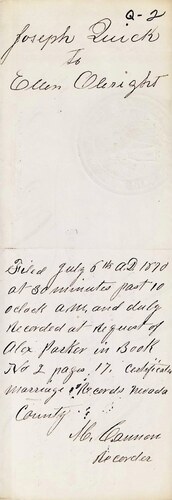 Q-2
Joseph Quick
to
Ellen Olsright
Filed July 6th A.D 1870
at 30 minutes past 10
oclock A.M. and duly
Recorded at Request of
Alex Parker in Book
No 2 pages 17. Certificate
marriage Records Nevada
County
M. Cannon
Recorder